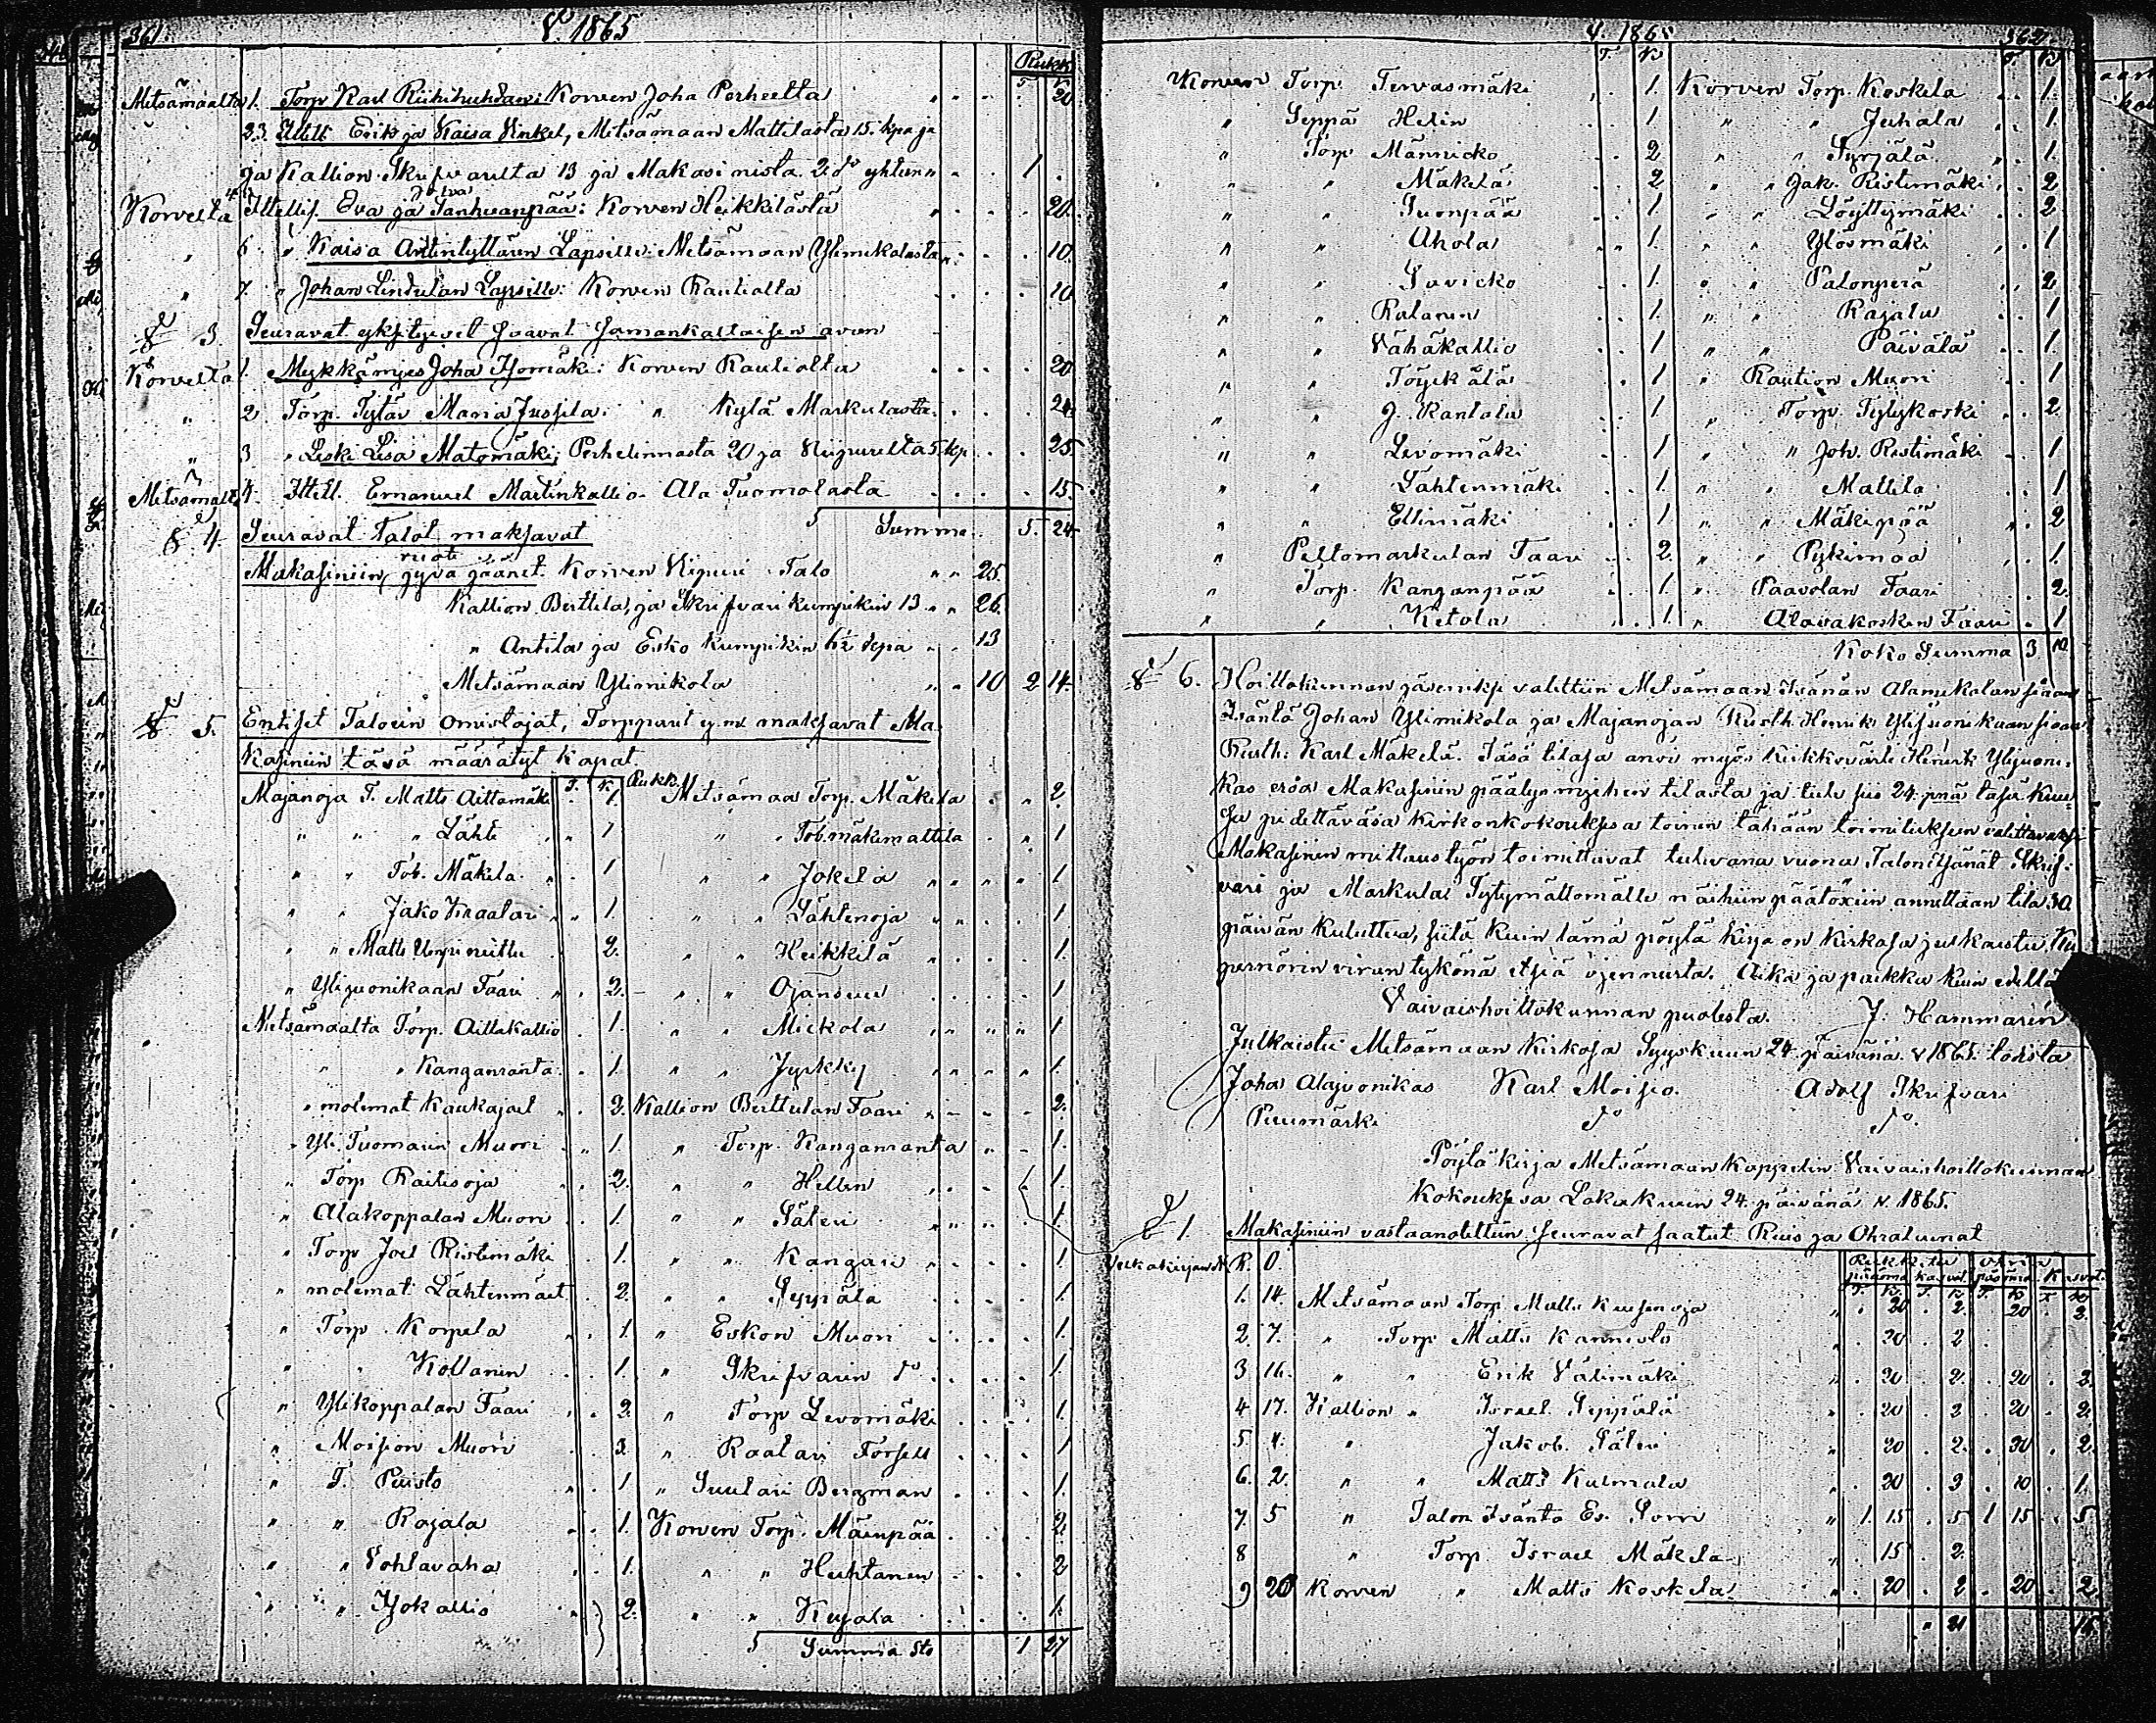 361 V. 1865
Rukk.
T. K.
Metsämaalta 1. Torp Karl Riihihuhdan: Korven Joha Perheelta 20
2.3. Ittelli Erik ja Kaisa Vinkel, Metsämaan Mattilasta 15. kpa ja
ja Kallion Skrifvarilta 13 ja Makasinista 2. do yhteen 1
Korvesta Ittellis. Eva ja Tanhuanpää: Korven Heikkilästä 20.
" 6. " Kaisa Antintyttären Lapsille: Metsämaan Ylinikolasta 10.
" 7. " Johan Lindulan Lapsille: Korven Rautialta 10
§ 3. Seuravat yksityiset saavat samankaltaisen avun
Korvesta 1. Mykkämies Joha Isomäki: Korven Rautialta 20
" 2. Torp. Tytär Maria Jussila: " Kylä Markulasta 24.
" 3 " Leski Lisa Matomäki; Perhelinnasta 20 ja Niipurilta 5. kp. 25.
Metsämaalta 4. Ittell. Emanuel Martinkallio. Ala Tuomolasta 15.
Summa 5. 24
§ 4. Seuravat Talot maksavat
Makasiniin, ruoti jyvä jäänet. Korven Niguri Talo 25.
Kallion Berttila, ja Skrifvari kumpikin 13 26.
" Antila ja Esko kumpikin 6½ kpa 13
Metsämaan Ylinikola 10 2 14.
§ 5. Entiset Taloin omistajat, Torpparit y.m. maksavat Ma-
kasiniin tävä määrätyt kapat.
T. K. Rukk.
Majanoja T. Matts Aittamäki 1. Metsämaa Torp. Mäkela 2.
" " " Lähte 1 " " Tob. mäkimattila 1
" " Tob. Mäkela 1 " " Jokela 1
" " Jako Kraatari 1. " " Lähtenoja 1
" " Matts Umpiniittu 2. " " Heikkilä 1.
" Ylijuonikaan Faari 2. " " Ojansuu 1
Metsämaalta Torp. Aittakallio 1. " " Mickola 1
" " Kanganranta 1 " " Jyrkky 1.
" molemat Kaukajael 2. Kallion Berttulan Faari 2.
" Yli Tuomarin Muori 1. " Torp. Kanganranta 1.
" Torp Raitisoja 2. " " Hellen 1.
" Alakoppalan Muori 1. " " Säteri 1
" Torp Joel Ristimäki 1. " " Kangari 1
" molemat Lähtenmäet 2. " " Seppäla 1.
" Torp. Korpela 1. " Eskon Muori 1.
" " Kollanin 1. " Skrifvarin do 1.
" Ylikoppalan Faari 2. " Torp Levomäki 1.
" Moision Muori 3. " Raatari Forsell 1
" T. Puisto 1 " Suutari Bergman 1.
" " Rajala 1. Korven Torp. Mäenpää 2.
" " Vohlavaha 1. " " Huhtanen 2
" " Isokallio 2. " " Kujala 1.
Summa Sto 1 27
V. 1865 362
T. K. T. K.
Korven Torp. Tervasmäki 1. Korven Torp. Koskela 1.
" Seppä Helin 1 " " Juhala 1.
" Torp Männicko 2 " " Syrjälä 1.
" " Mäkelä 2 " " Jak. Ristimäki 2
" " Suonpää 1. " " Löyttymäki 2
" " Ahola 1. " " Ylösmäki 1
" " Savicko 1. " " Palonperä 2
" " Ratanen 1. " " Rajala 1
" " Vähäkallio 1 " " Päivälä 1.
" " Töyckälä 1 " Raution Muori 1
" " J. Rantala 1 " Torp Tytykoski 2
" " Levomäki 1 " " Joh. Ristimäki 1
" " Lähtenmäki 1. " " Mattila 1
" " Ellimäki 1 " " Mäkipää 2
" Peltomarkulan Faari 2. " " Pykimaa 1.
" Torp. Kanganpää 1. " Paavolan Faari 2.
" " Ketola 1. " Alavakosken Faari 1
Koko Summa 3 10.
§ 6. Hoitokunnan jäseniksi valittiin Metsämaan Isänän Alanikolan siaan
Isäntä Johan Ylinikola ja Majanojan Rusth. Henrik Ylijuonikaan siaan
Rusth. Karl Mäkelä. Täsä tilasa anoi myös Kirkkovärti Henrik Ylijuoni-
kas eroa Makasiinin päälysmiehen tilasta ja tulee siis 24. pnä täsä Kuu-
su pidettäväsä kirkonkokouksesa toinen tähään toimitukseen valittavaksi
Makasinin mittaustyön toimittavat tulevana vuona Talon Isänät Skrif-
vari ja Markula. Tytymättömälle näihin päätöxiin annettaan tila 30.
päivän kuluttua, siitä kuin tämä pöytä kirja on kirkosa julkaistu, Ku-
pernörin viran tykönä etsiä ojennusta. Aika ja paikka kuin edellä
Vaivaishoitokunnan puolesta. J. Hammarén
Julkaistu Metsämaan Kirkosa Syyskuun 24. päivänä v 1865. todista
Joha Alajuonikas Karl Moisio. Adolf Skrifvari
Puumärki do do.
Pöytäkirja Metsämaan Kappelin Vaivaishoitokunnan
Kokouksesa Lokakuun 24. päivänä v. 1865.
§ 1. Makasiniin vastaanotettiin seuravat saatut Ruis ja Ohralainat
Velkakirjan N. R. O. Rukkita Ohria
pääoma kasvot pääoma kasvot.
T. K. T. K. T. K. T. K.
1. 14. Metsämaan Torp Matts Kuusenoja 20 2. 20 2.
2. 7. " Torp Matts Kannisto 20 2
3 16. " " Erik Välimäki 20 2. 20 2.
4 17. Kallion " Israel Seppälä 20 2 20 2.
5. 4. " Jakob Säteri 20 2. 20 2.
6. 2. " " Matts Kulmala 20 3 10 1.
7. 5 " Talon Isäntä Es. Somi 1 15 5 1 15 5
8 " Torp Israel Mäkela 15 2.
9 20 Korven " Matts Koskela 20 2 20 2.
21 16